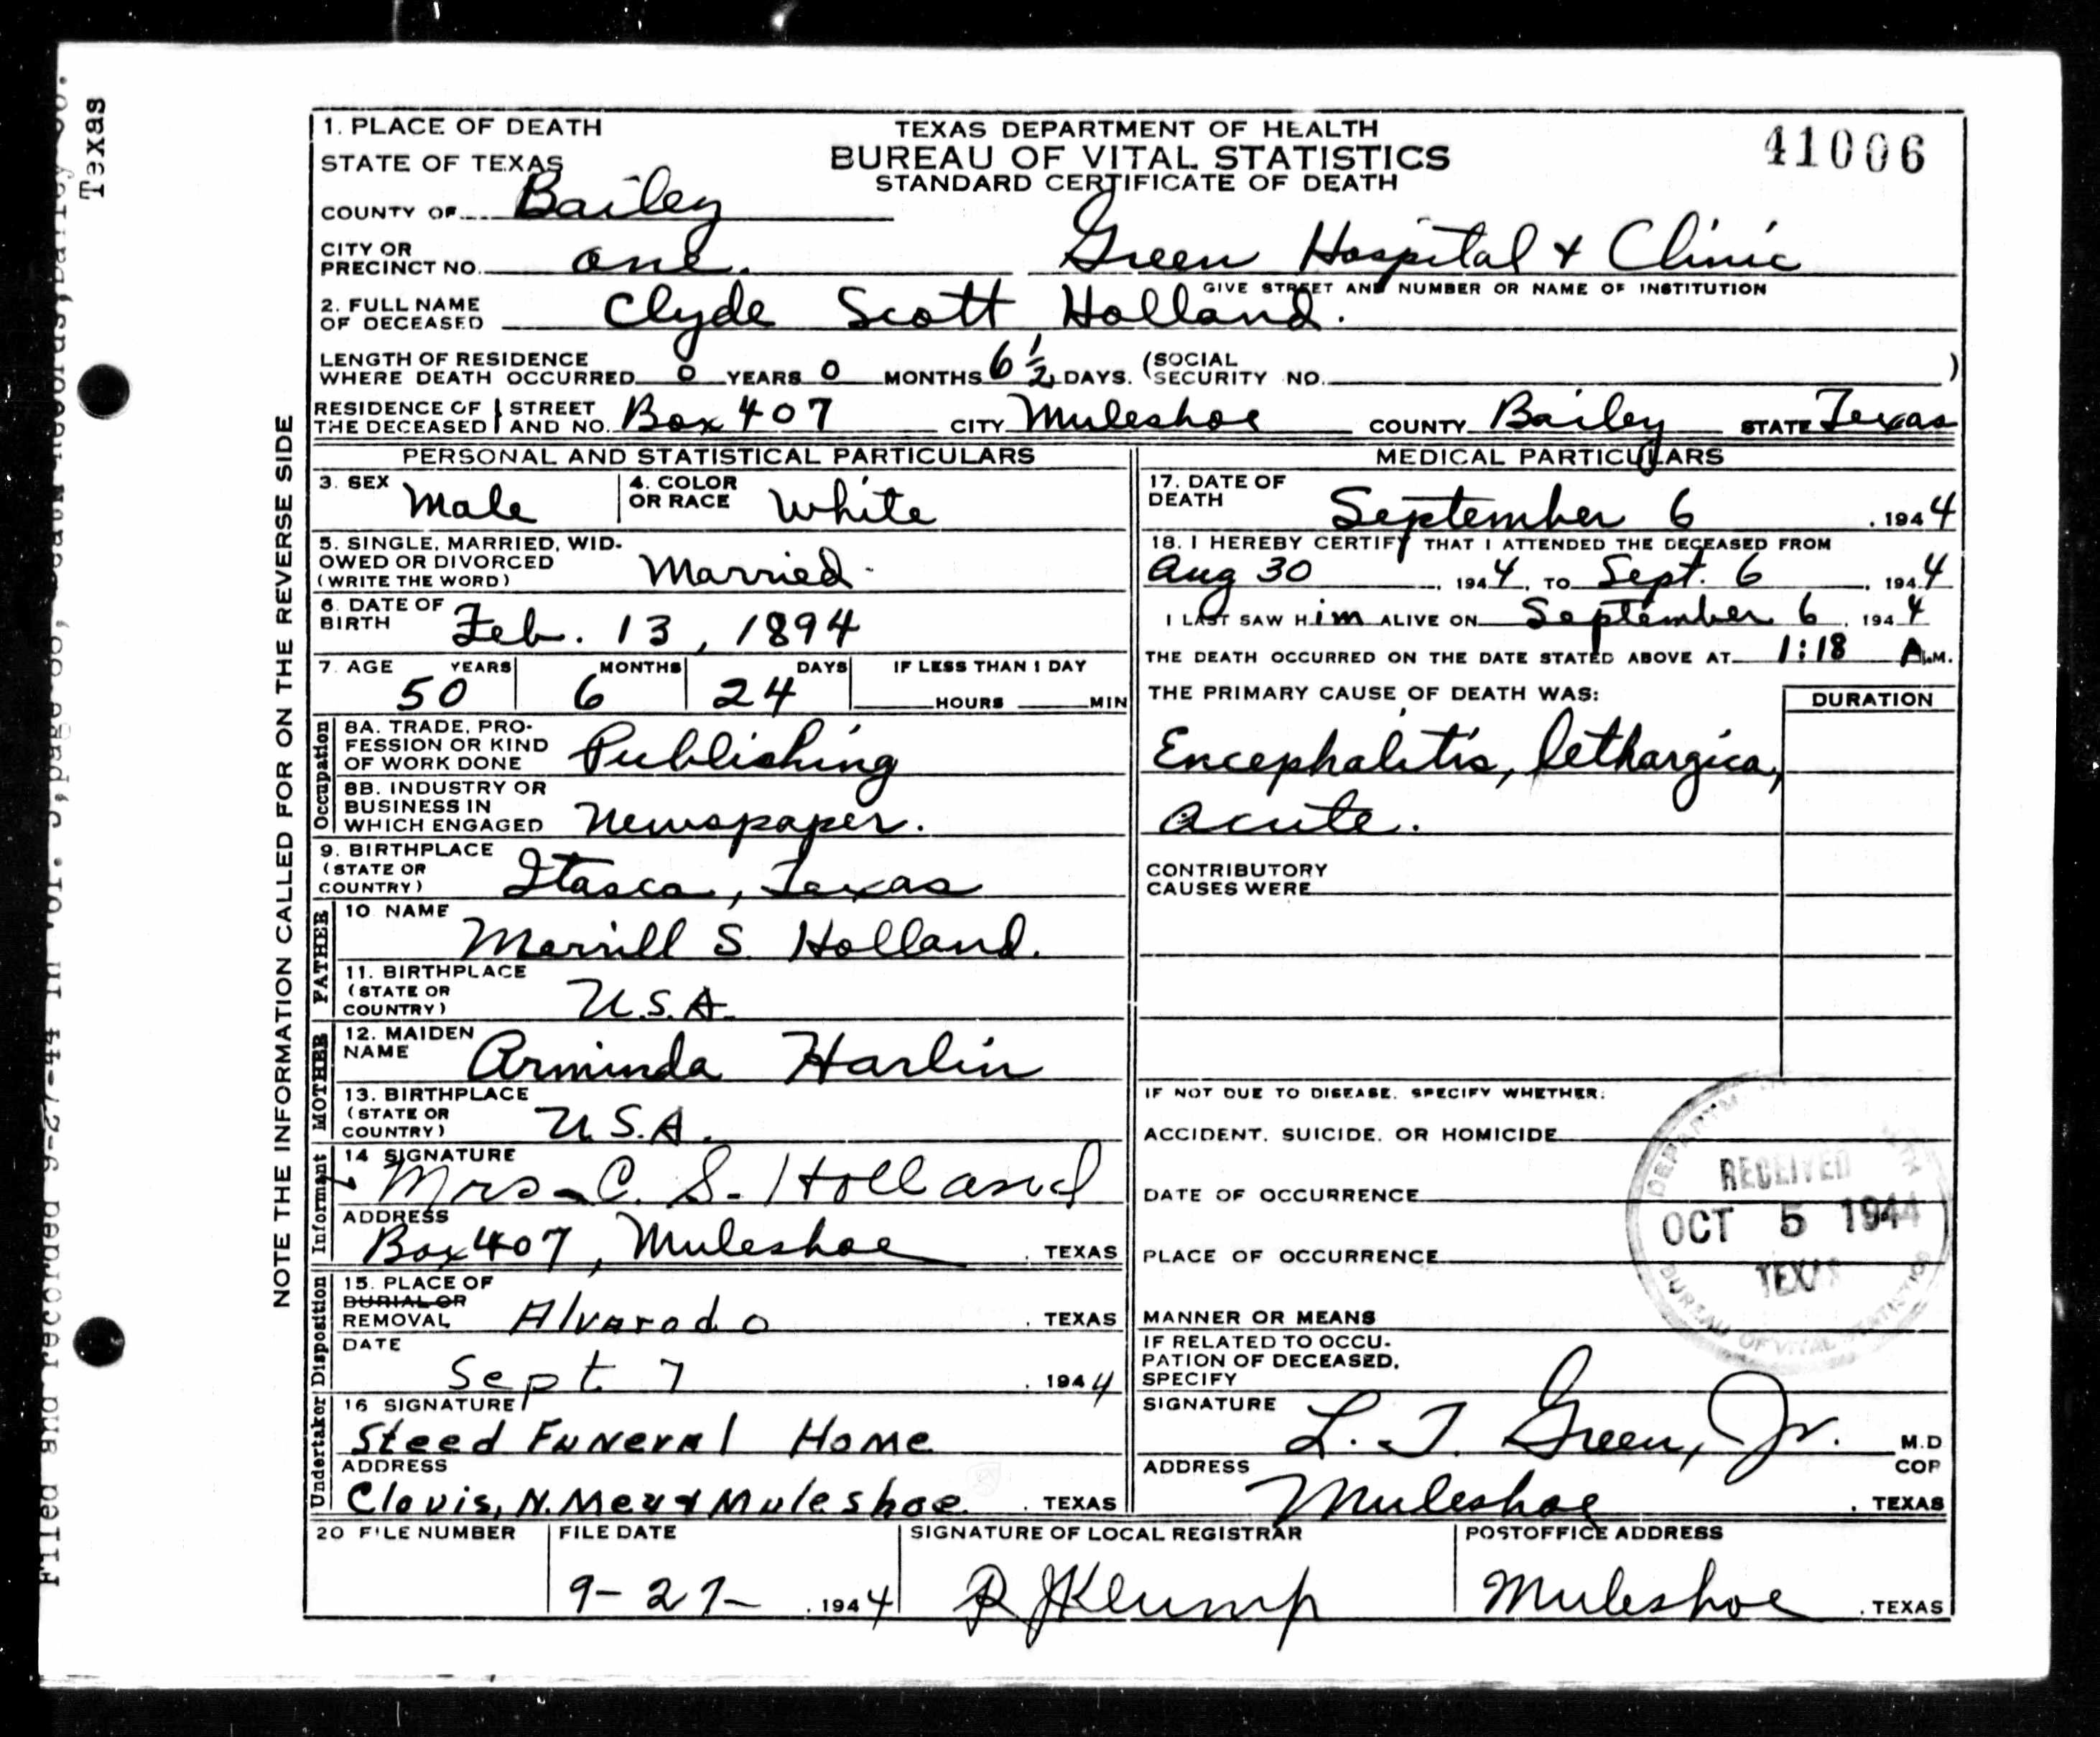 Texas
Filed and recorded 9-27-44 in Vol. 3, page 88, Death Records, Bailey Co.
NOTE THE INFORMATION CALLED FOR ON THE REVERSE SIDE
1. PLACE OF DEATH
STATE OF TEXAS
TEXAS DEPARTMENT OF HEALTH
BUREAU OF VITAL STATISTICS
STANDARD CERTIFICATE OF DEATH
41006
COUNTY OF Bailey
CITY OR PRECINCT NO. one. Green Hospital & Clinic
GIVE STREET AND NUMBER OR NAME OF INSTITUTION
2. FULL NAME OF DECEASED Clyde Scott Holland.
LENGTH OF RESIDENCE WHERE DEATH OCCURRED 0 YEARS 0 MONTHS 6 1/2 DAYS. (SOCIAL SECURITY NO. )
RESIDENCE OF THE DECEASED STREET AND NO. Box 407 CITY Muleshoe COUNTY Bailey STATE Texas
PERSONAL AND STATISTICAL PARTICULARS
3. SEX Male 4. COLOR OR RACE White
5. SINGLE, MARRIED, WIDOWED OR DIVORCED (WRITE THE WORD) Married
6. DATE OF BIRTH Feb. 13, 1894
7. AGE YEARS 50 MONTHS 6 DAYS 24 IF LESS THAN 1 DAY HOURS MIN
Occupation
8A. TRADE, PROFESSION OR KIND OF WORK DONE Publishing
8B. INDUSTRY OR BUSINESS IN WHICH ENGAGED Newspaper.
9. BIRTHPLACE (STATE OR COUNTRY) Itasca, Texas
FATHER
10 NAME Merrill S. Holland.
11. BIRTHPLACE (STATE OR COUNTRY) U.S.A.
MOTHER
12. MAIDEN NAME Arminda Harlin
13. BIRTHPLACE (STATE OR COUNTRY) U.S.A.
Informant
14 SIGNATURE Mrs. C. S. Holland
ADDRESS Box 407, Muleshoe, TEXAS
Disposition
15. PLACE OF BURIAL OR REMOVAL Alvarado, TEXAS
DATE Sept 7, 1944
Undertaker
16 SIGNATURE Steed Funeral Home
ADDRESS Clovis, N. Mex & Muleshoe, TEXAS
MEDICAL PARTICULARS
17. DATE OF DEATH September 6, 1944
18. I HEREBY CERTIFY THAT I ATTENDED THE DECEASED FROM
Aug 30, 1944, TO Sept. 6, 1944
I LAST SAW HIM ALIVE ON September 6, 1944
THE DEATH OCCURRED ON THE DATE STATED ABOVE AT 1:18 A.M.
THE PRIMARY CAUSE OF DEATH WAS: DURATION
Encephalitis, lethargica,
acute.
CONTRIBUTORY CAUSES WERE
IF NOT DUE TO DISEASE, SPECIFY WHETHER:
ACCIDENT, SUICIDE, OR HOMICIDE
DATE OF OCCURRENCE
PLACE OF OCCURRENCE
MANNER OR MEANS
IF RELATED TO OCCUPATION OF DECEASED, SPECIFY
RECEIVED
OCT 5 1944
TEXAS
BUREAU OF VITAL STATISTICS
SIGNATURE L. T. Green, Jr. M.D COR
ADDRESS Muleshoe, TEXAS
20 FILE NUMBER
FILE DATE 9-27-, 1944
SIGNATURE OF LOCAL REGISTRAR R J Klump
POSTOFFICE ADDRESS Muleshoe, TEXAS